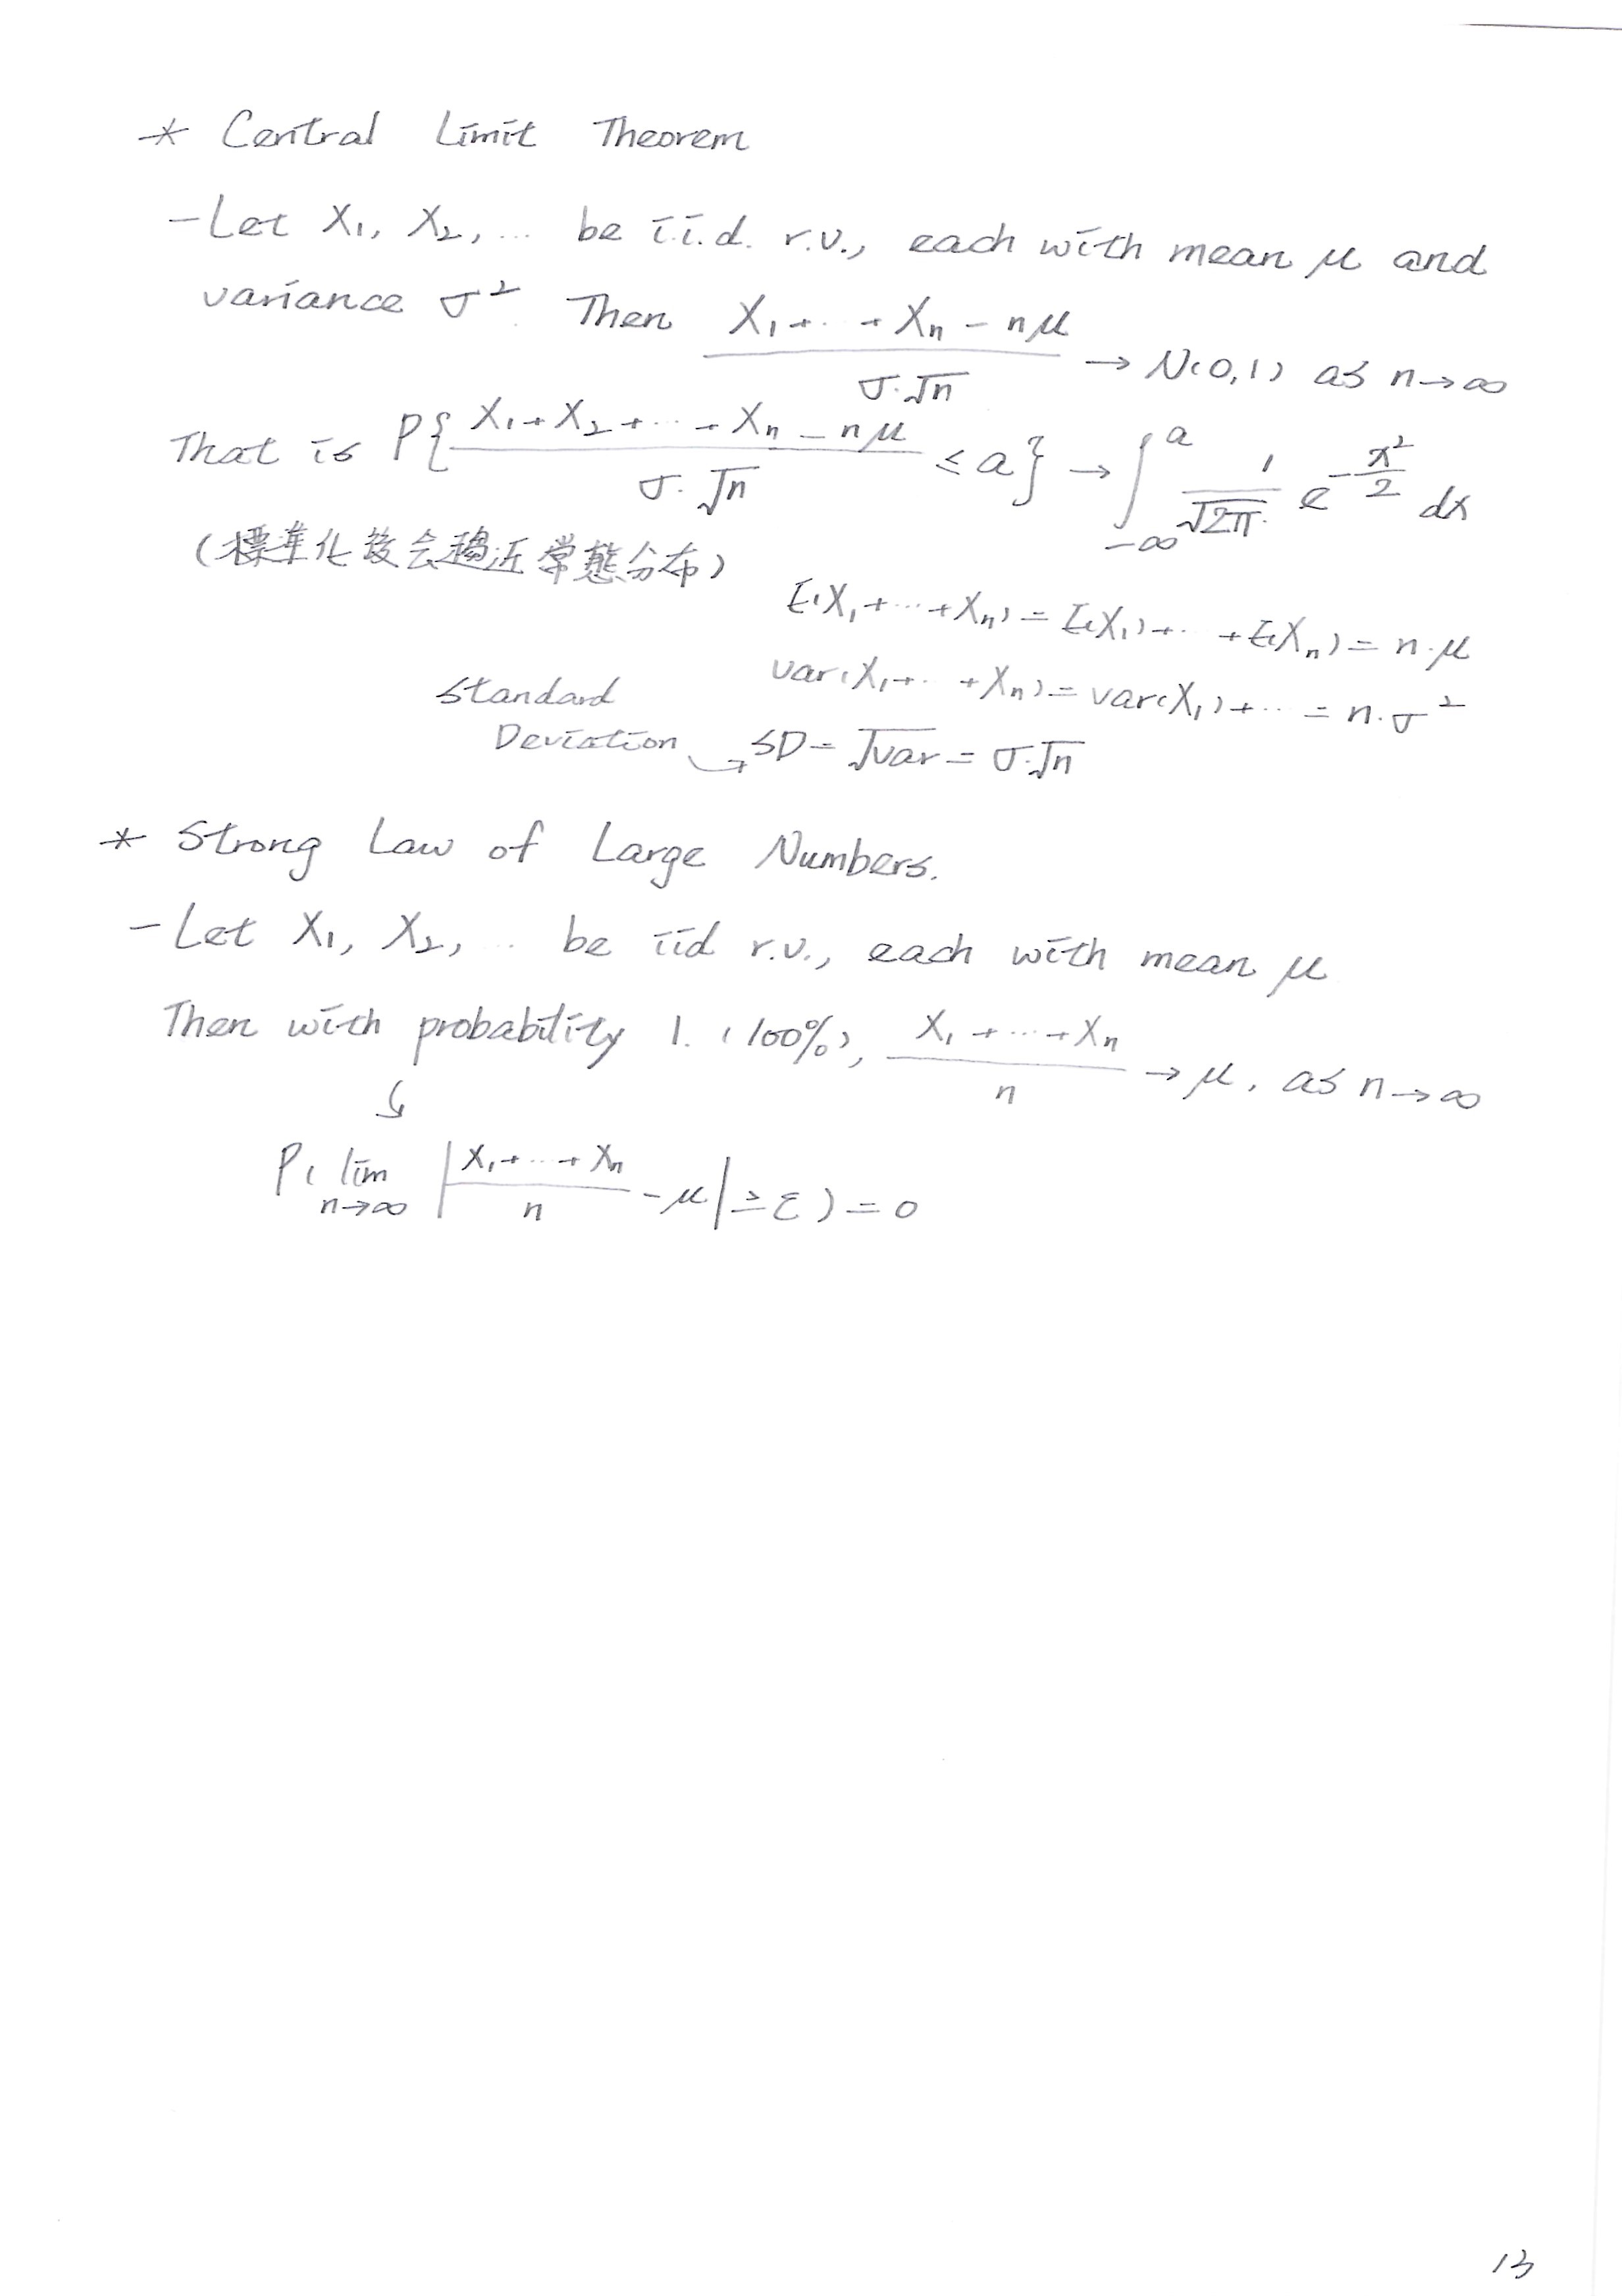 * Central Limit Theorem
- Let X₁, X₂, ... be i.i.d. r.v., each with mean μ and
variance σ². Then (X₁ + ... + Xₙ - nμ) / (σ·√n) → N(0,1) as n→∞
That is P{ (X₁ + X₂ + ... + Xₙ - nμ) / (σ·√n) ≤ a } → ∫_{-∞}^{a} (1/√2π) e^{-x²/2} dx
(標準化後会趨近常態分布)
E(X₁ + ... + Xₙ) = E(X₁) + ... + E(Xₙ) = n·μ
var(X₁ + ... + Xₙ) = var(X₁) + ... = n·σ²
Standard
Deviation → SD = √var = σ·√n
* Strong Law of Large Numbers.
- Let X₁, X₂, ... be iid r.v., each with mean μ
Then with probability 1. (100%), (X₁ + ... + Xₙ) / n → μ, as n→∞
↳
P( lim_{n→∞} | (X₁ + ... + Xₙ) / n - μ | ≥ ε ) = 0
13